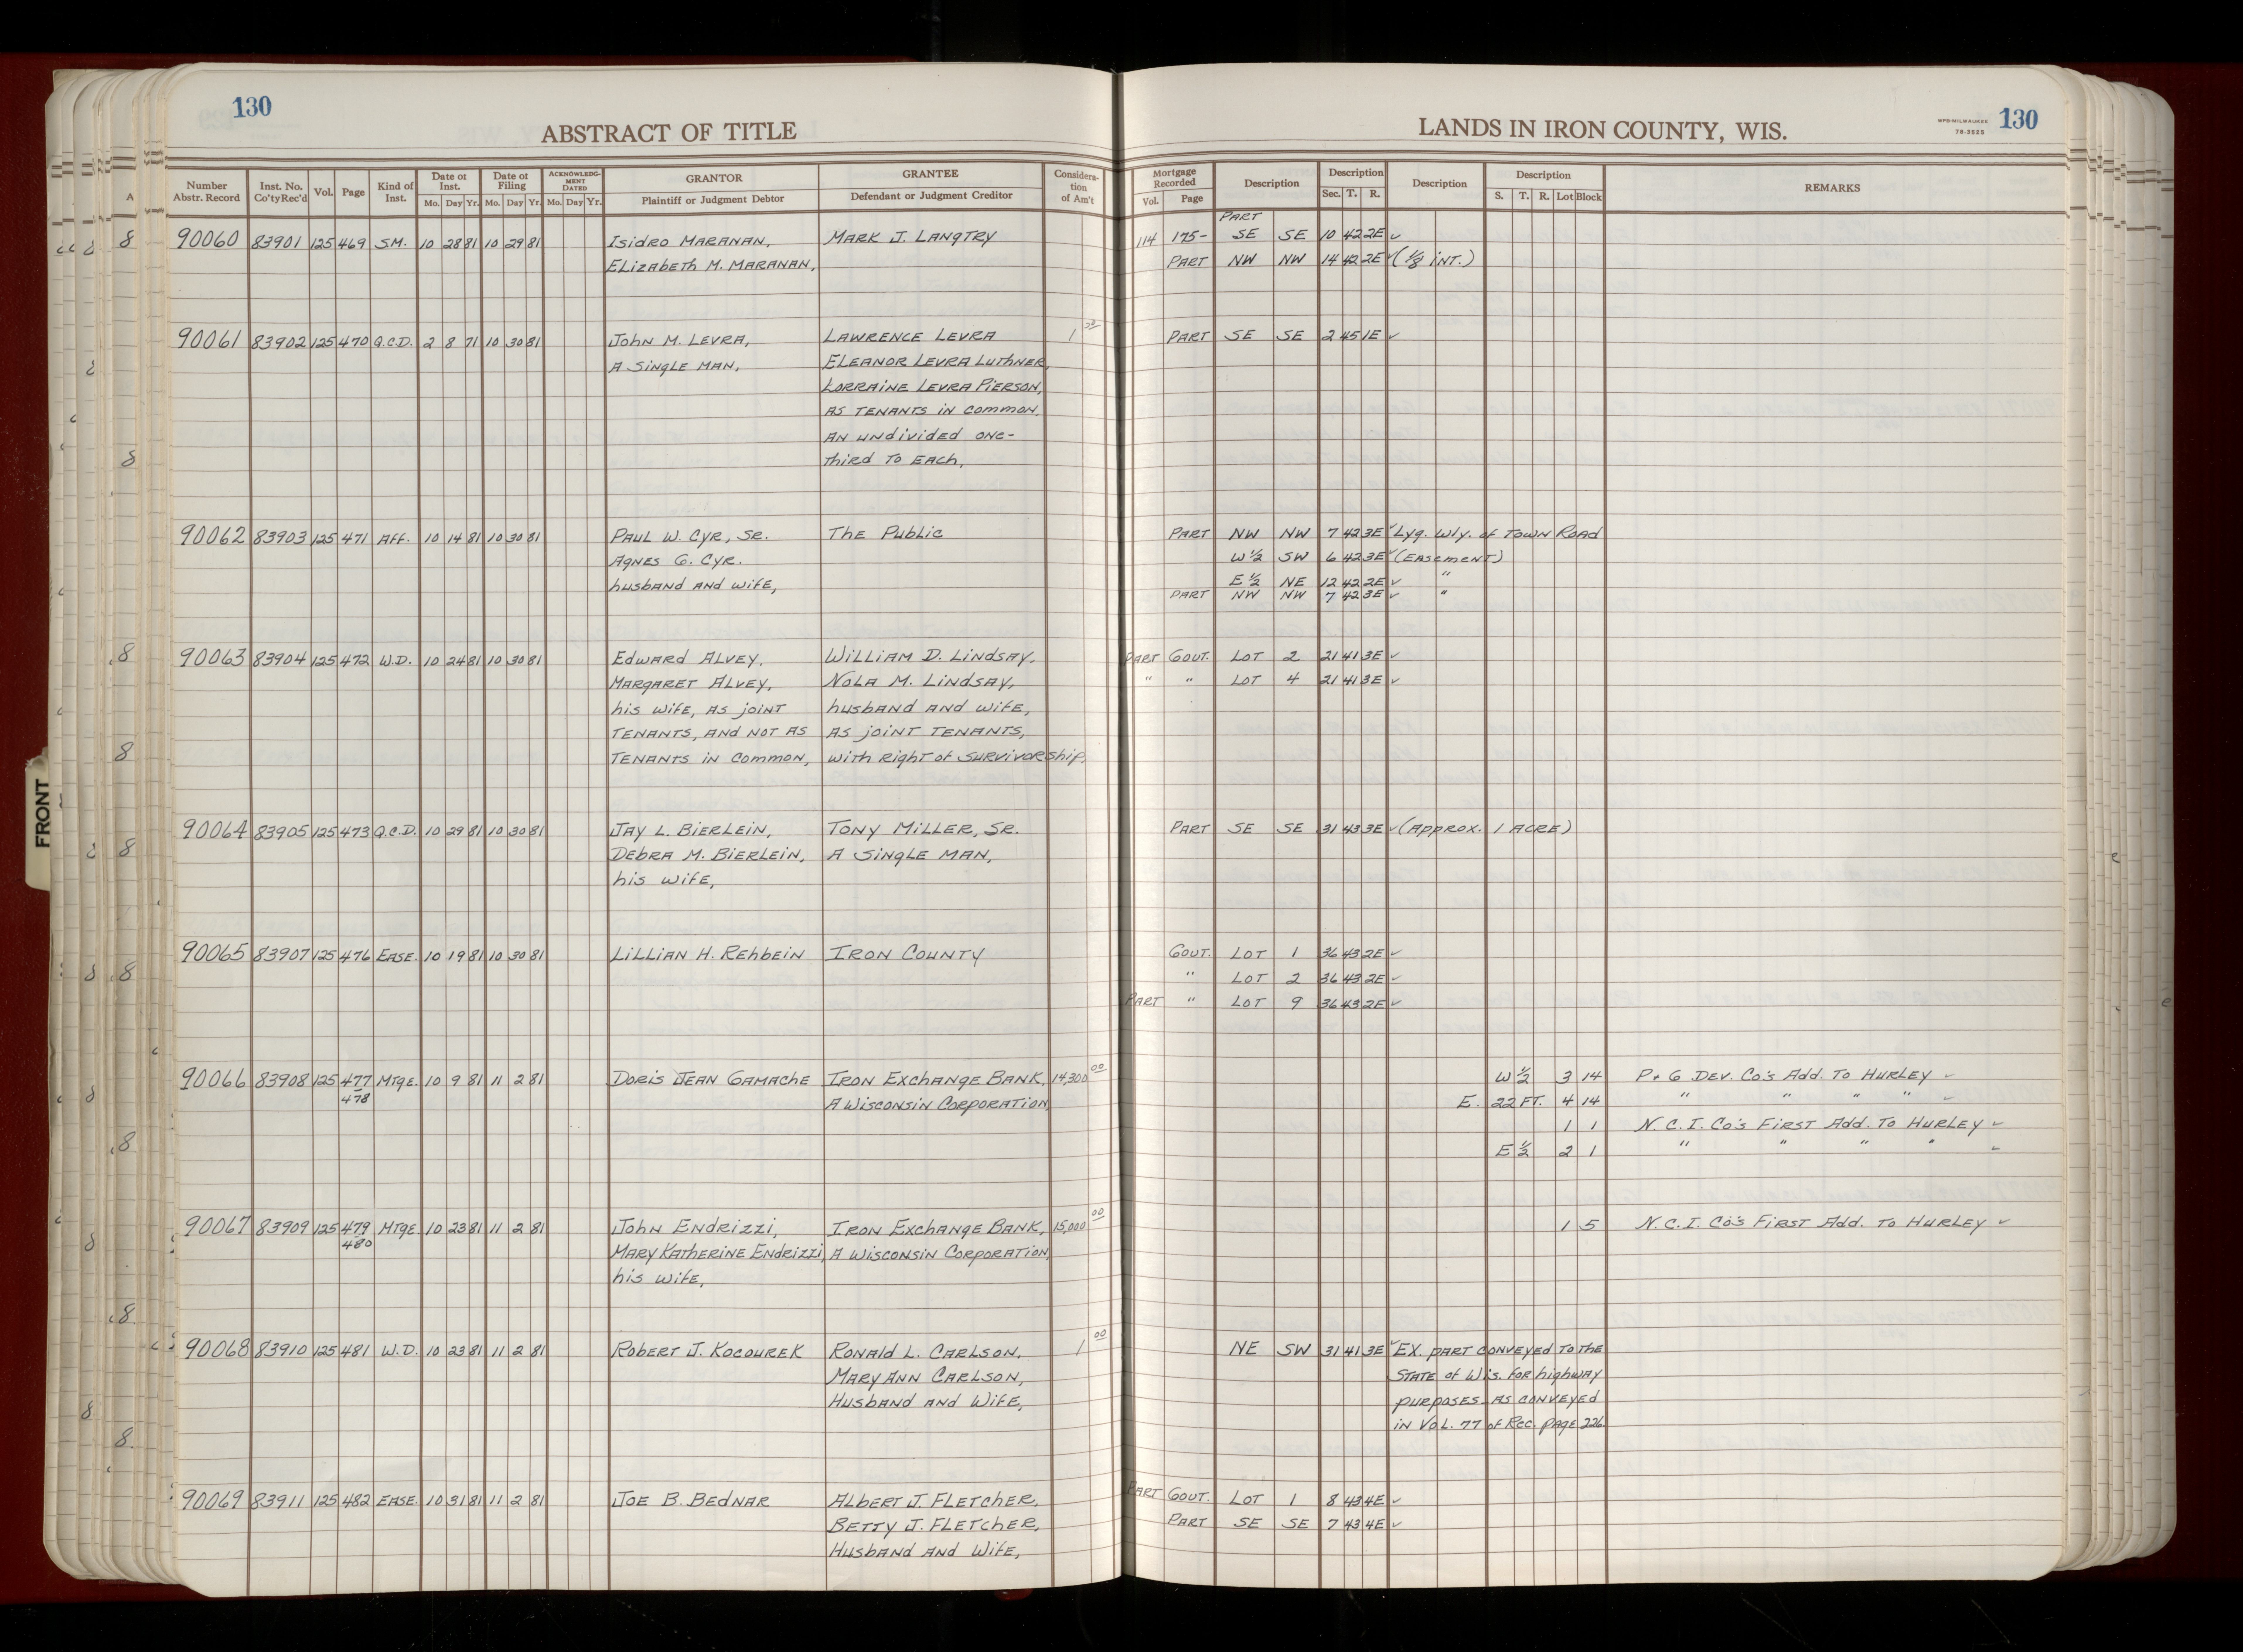 130
ABSTRACT OF TITLE
LANDS IN IRON COUNTY, WIS.
WPB-MILWAUKEE
78-3525
130
Number Abstr. Record | Inst. No. Co'ty Rec'd | Vol. | Page | Kind of Inst. | Date of Inst. Mo. Day Yr. | Date of Filing Mo. Day Yr. | ACKNOWLEDG-MENT DATED Mo. Day Yr. | GRANTOR Plaintiff or Judgment Debtor | GRANTEE Defendant or Judgment Creditor | Considera-tion of Am't | Mortgage Recorded Vol. Page | Description | Description Sec. T. R. | Description | Description S. T. R. Lot Block | REMARKS
PART
90060 83901 125 469 S.M. 10 28 81 10 29 81 Isidro MARANAN, MARK J. LANGTRY 114 175- SE SE 10 42 2E ✓
ELizabeth M. MARANAN, PART NW NW 14 42 2E ✓ (1/8 INT.)
90061 83902 125 470 Q.C.D. 2 8 71 10 30 81 John M. LEVRA, LAWRENCE LEVRA 1 00 PART SE SE 2 45 1E ✓
A SiNgLE MAN, ELEANOR LEVRA LuthNER,
LORRAiNE LEVRA PiERSON,
AS TENANTS iN Common,
AN uNdivided one-
third To EAch,
90062 83903 125 471 AFF. 10 14 81 10 30 81 PAUL W. CYR, SR. The Public PART NW NW 7 42 3E ✓ Lyg. Wly. of TOWN ROAD
AgNES G. CYR. W 1/2 SW 6 42 3E ✓ (EASEMENT)
husbAND AND WiFE, E 1/2 NE 12 42 2E ✓ "
PART NW NW 7 42 3E ✓ "
90063 83904 125 472 W.D. 10 24 81 10 30 81 EdwARd ALVEY, WiLLiAM D. LiNdSAY, PART GOVT. LOT 2 21 41 3E ✓
MARGARET ALVEY, NOLA M. LiNdSAY, " " LOT 4 21 41 3E ✓
his WiFE, AS joiNT husbANd ANd WiFE,
TENANTS, AND NOT AS AS joiNT TENANTS,
TENANTS iN Common, With Right of SURVivORship,
90064 83905 125 473 Q.C.D. 10 29 81 10 30 81 JAY L. BiERLEiN, TONY MiLLER, SR. PART SE SE 31 43 3E ✓ (Approx. 1 ACRE)
DEbRA M. BiERLEiN, A SiNgLE MAN,
his WiFE,
90065 83907 125 476 EASE. 10 19 81 10 30 81 LiLLiAN H. REhbEiN IRON COUNTY GOVT. LOT 1 36 43 2E ✓
" LOT 2 36 43 2E ✓
PART " LOT 9 36 43 2E ✓
90066 83908 125 477 MTgE. 10 9 81 11 2 81 DoRis JEAN GAMAChE IRON ExChANgE BANK, 14,300 00 W 1/2 3 14 P + G DEV. Co's Add. To HURLEY ✓
478 A WiSCONSiN CoRPORATiON, E. 22 FT. 4 14 " " " " ✓
1 1 N.C.I. Co's FiRST Add. To HURLEY ✓
E 1/2 2 1 " " " " ✓
90067 83909 125 479 MTgE. 10 23 81 11 2 81 John ENdRizzi, IRON ExChANgE BANK, 15,000 00 1 5 N.C.I. Co's FiRST Add. To HURLEY ✓
480 MARY KAThERiNE ENdRizzi, A WiSCONSiN CoRPORATiON,
his WiFE,
90068 83910 125 481 W.D. 10 23 81 11 2 81 RobERT J. KOCOUREK RONAld L. CARLSON, 1 00 NE SW 31 41 3E ✓ EX. PART CONVEYED TO ThE
MARY ANN CARLSON, STATE of Wis. FOR highwAY
HusbANd ANd WiFE, PURPOSES AS CONVEYEd
iN VOL. 77 of REC. PAgE 226.
90069 83911 125 482 EASE. 10 31 81 11 2 81 JOE B. BEdNAR ALbERT J. FLETChER, PART GOVT. LOT 1 8 43 4E ✓
BETTY J. FLETChER, PART SE SE 7 43 4E ✓
HusbANd ANd WiFE,
FRONT